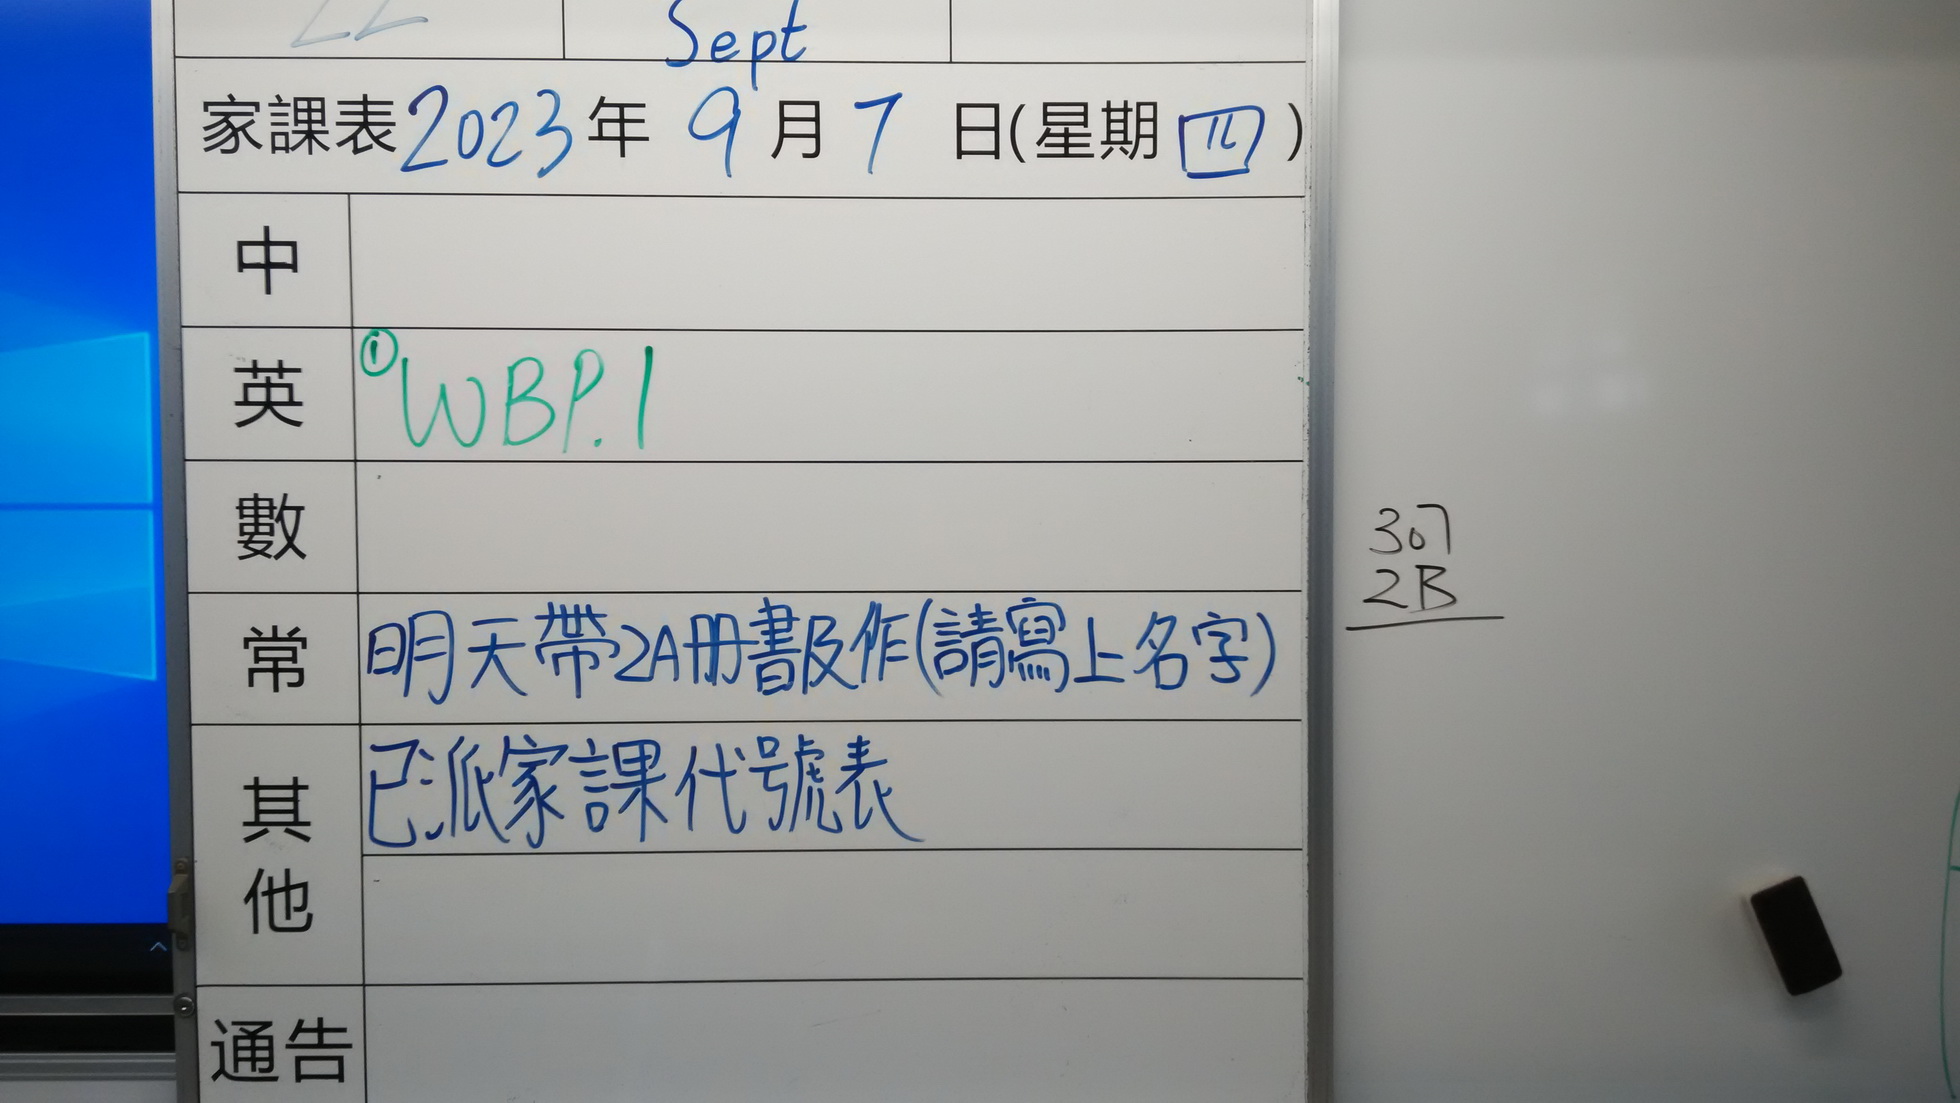 Sept
家課表2023年 9月7日(星期四)
中
英 ①WBP.1
數
常 明天帶2A冊書及作(請寫上名字)
其他 已派家課代號表
通告
307
2B